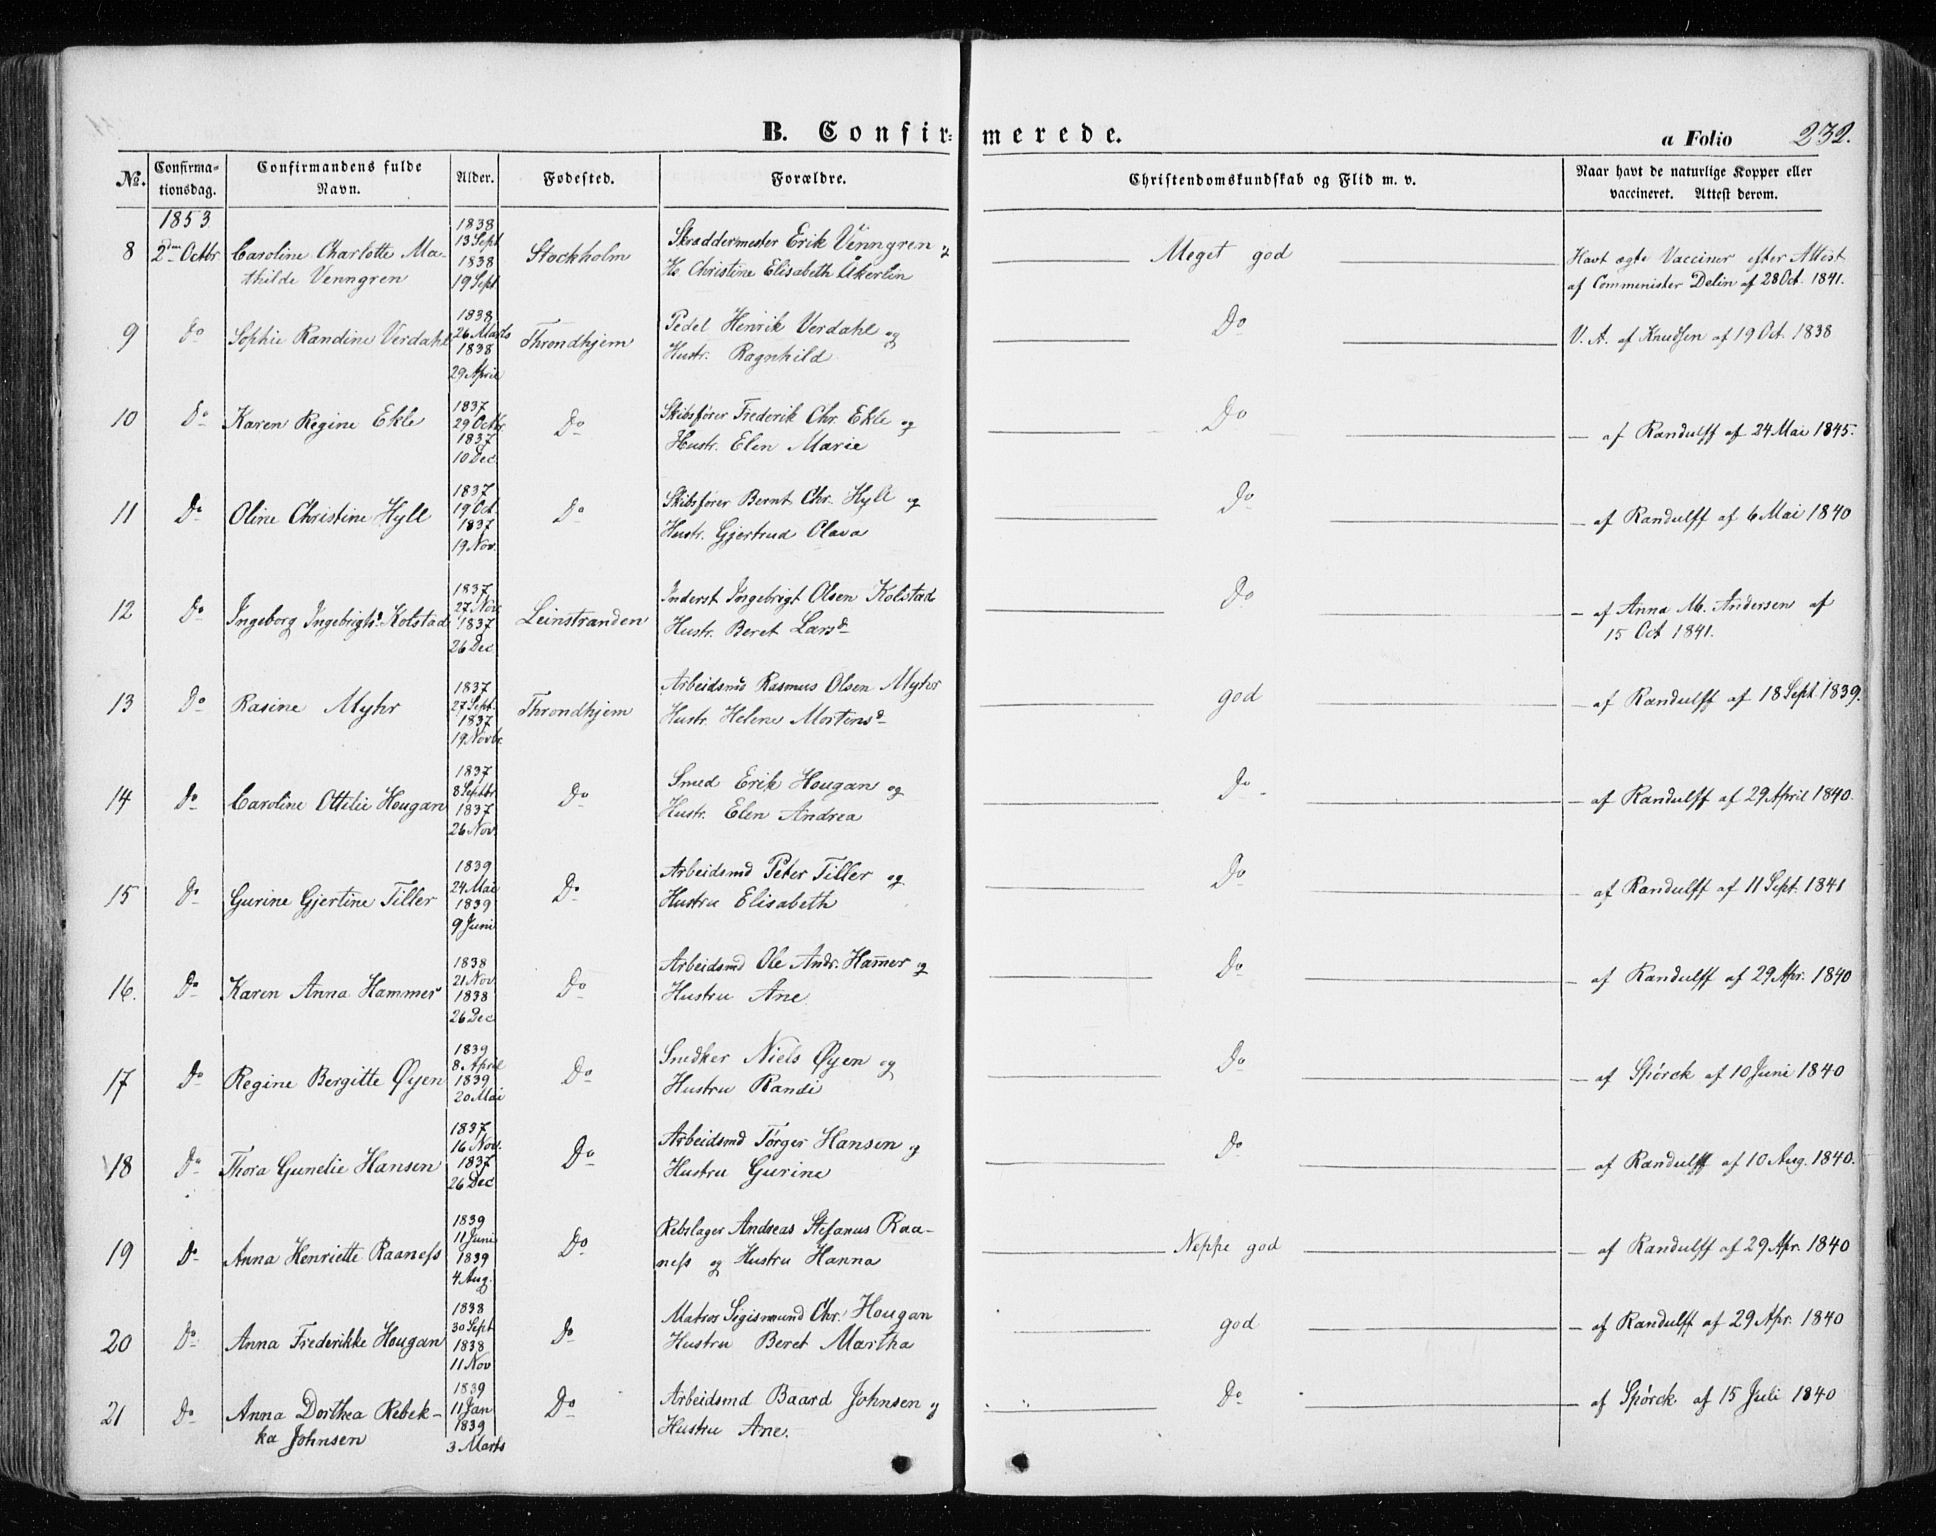 B. Confirmerede.
a Folio 232.
No. Confirmationsdag. Confirmandens fulde Navn. Alder. Fødested. Forældre. Christendomskundskab og Flid m. v. Naar havt de naturlige Kopper eller vaccineret. Attest derom.
1853.
8 2den Octbr. Caroline Charlotte Ma- 1838 13 Sept Stockholm Skræddermester Erik Venngren og Meget god Havt ægte Vacciner efter Attest
thilde Venngren 1838 19 Sept Ho Christine Elisabeth Åkerlin af Comminister Delin af 28 Oct. 1841.
9 Do Sophie Randine Verdahl 1838 26 Marts Throndhjem Pedel Henrik Verdahl og Do V. A. af Knudsen af 19 Oct. 1838
1838 29 April Hustr. Ragnhild
10 Do Karen Regine Ekle 1837 29 Octbr Do Skibsfører Frederik Chr. Ekle og Do — af Randulff af 24 Mai 1845.
1837 10 Dec. Hustr. Elen Marie
11 Do Oline Christine Hyll 1837 19 Oct. Do Skibsfører Bernt Chr. Hyll og Do — af Randulff af 6 Mai 1840
1837 19 Nov. Hustr. Gjertrud Olava
12 Do Ingeborg Ingebrigtsd. Kolstad 1837 27 Nov Leinstranden Inderst Ingebrigt Olsen Kolstad Do — af Anna M. Andersen af
1837 26 Dec Hustr. Beret Larsd 15 Oct 1841.
13 Do Rasine Myhr 1837 27 Sept. Throndhjem Arbeidsmd Rasmus Olsen Myhr god — af Randulff af 18 Sept. 1839.
1837 19 Novbr. Hustr. Helene Mortensd
14 Do Caroline Ottilie Hougan 1837 8 Septbr Do Smed Erik Hougan og Do — af Randulff af 29 April 1840.
1837 26 Nov. Hustr. Elen Andrea
15 Do Gurine Gjertine Tiller 1839 24 Mai Do Arbeidsmd Peter Tiller og Do — af Randulff af 11 Sept. 1841
1839 9 Juni Hustru Elisabeth
16. Do Karen Anna Hammer 1838 21 Nov Do Arbeidsmd Ole Andr. Hamer og Do — af Randulff af 29 Apr. 1840
1838 26 Dec Hustru Ane
17 Do Regine Bergitte Øyen 1839 8. April Do Snedker Niels Øyen og Do — af Spørck af 10 Juni 1840
1839 20 Mai Hustru Randi
18 Do Thora Gunelie Hansen 1837 16 Nov. Do Arbeidsmd Tørger Hansen og Do — af Randulff af 10 Aug. 1840.
1837 26 Dec Hustru Gurine
19 Do Anna Henriette Raaness 1839 11 Juni Do Rebslager Andreas Stefanus Raa- Neppe god — af Randulff af 29 Apr. 1840
1839 4 Aug. ness og Hustru Hanna
20 Do Anna Frederikke Hougan 1838 30 Sept Do Matros Sigismund Chr. Hougan god — af Randulff af 29 Apr. 1840
1838 11 Nov Hustru Beret Martha
21 Do Anna Dorthea Rebek- 1839 11 Jan Do Arbeidsmd Baard Johnsen og Do — af Spørck af 15 Juli 1840
ka Johnsen 1839 3 Marts Hustru Ane.